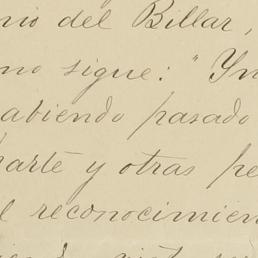 nio del Billar,
mo sigue: "Yn
abiendo pasado
parte y otras pe
l reconocimien